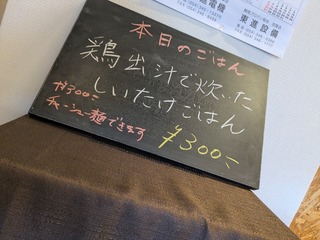 本日のごはん
鶏出汁で炊いた
しいたけごはん
¥300-
チャーシュー麺できます
¥300-
東進設備